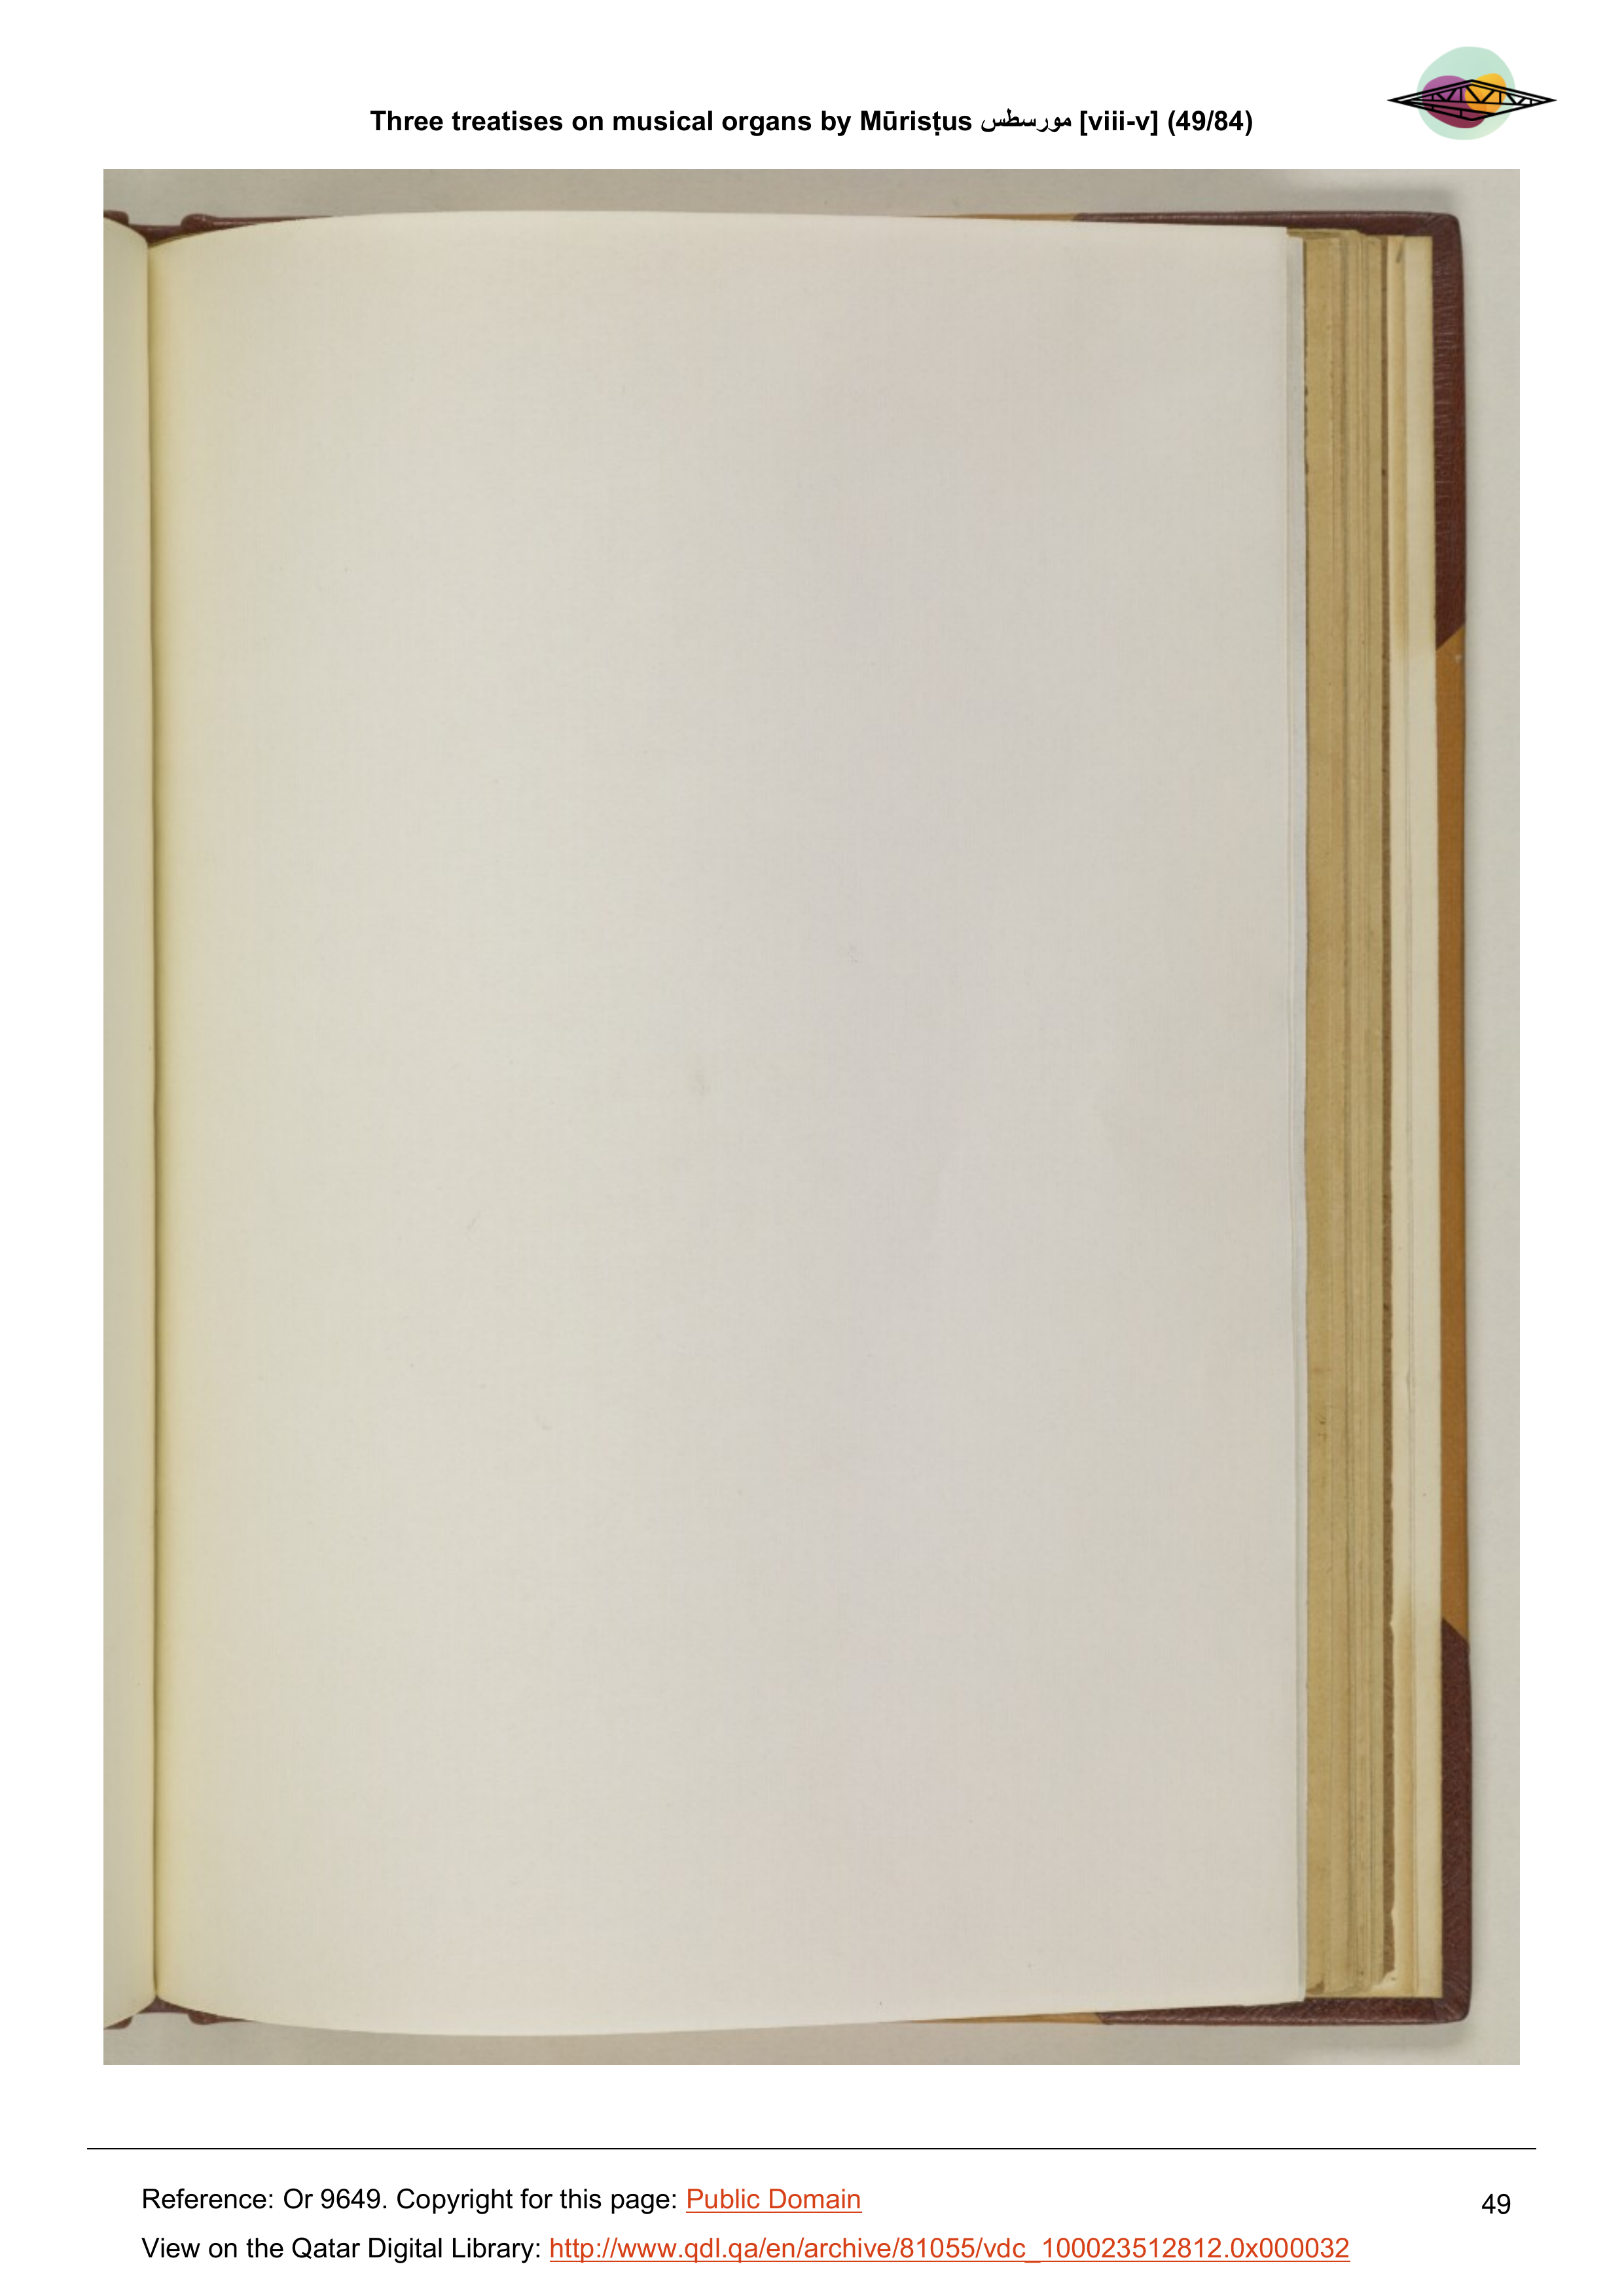 Three treatises on musical organs by Mūrisṭus مورسطس [viii-v] (49/84)
Reference: Or 9649. Copyright for this page: Public Domain
49
View on the Qatar Digital Library: http://www.qdl.qa/en/archive/81055/vdc_100023512812.0x000032